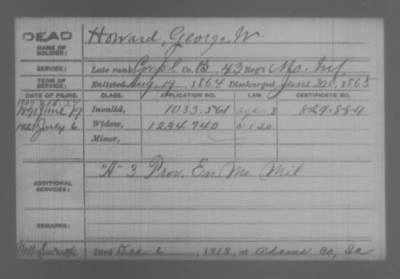 DEAD
NAME OF SOLDIER:
Howard, George W.
SERVICE:
Late rank Corpl. Co. B, 43 Reg't Mo. Inf.
TERM OF SERVICE:
Enlisted Aug. 19, 1864 Discharged June 30, 1865
DATE OF FILING. CLASS. APPLICATION NO. LAW. CERTIFICATE NO.
Invalid, 1033.561 829.884
July 6 Widow, 1234.740
Minor,
ADDITIONAL SERVICES:
"A" 3 Prov. En Mo Mil
REMARKS:
Died Dec 6, 1918, at Adams Co, Ia